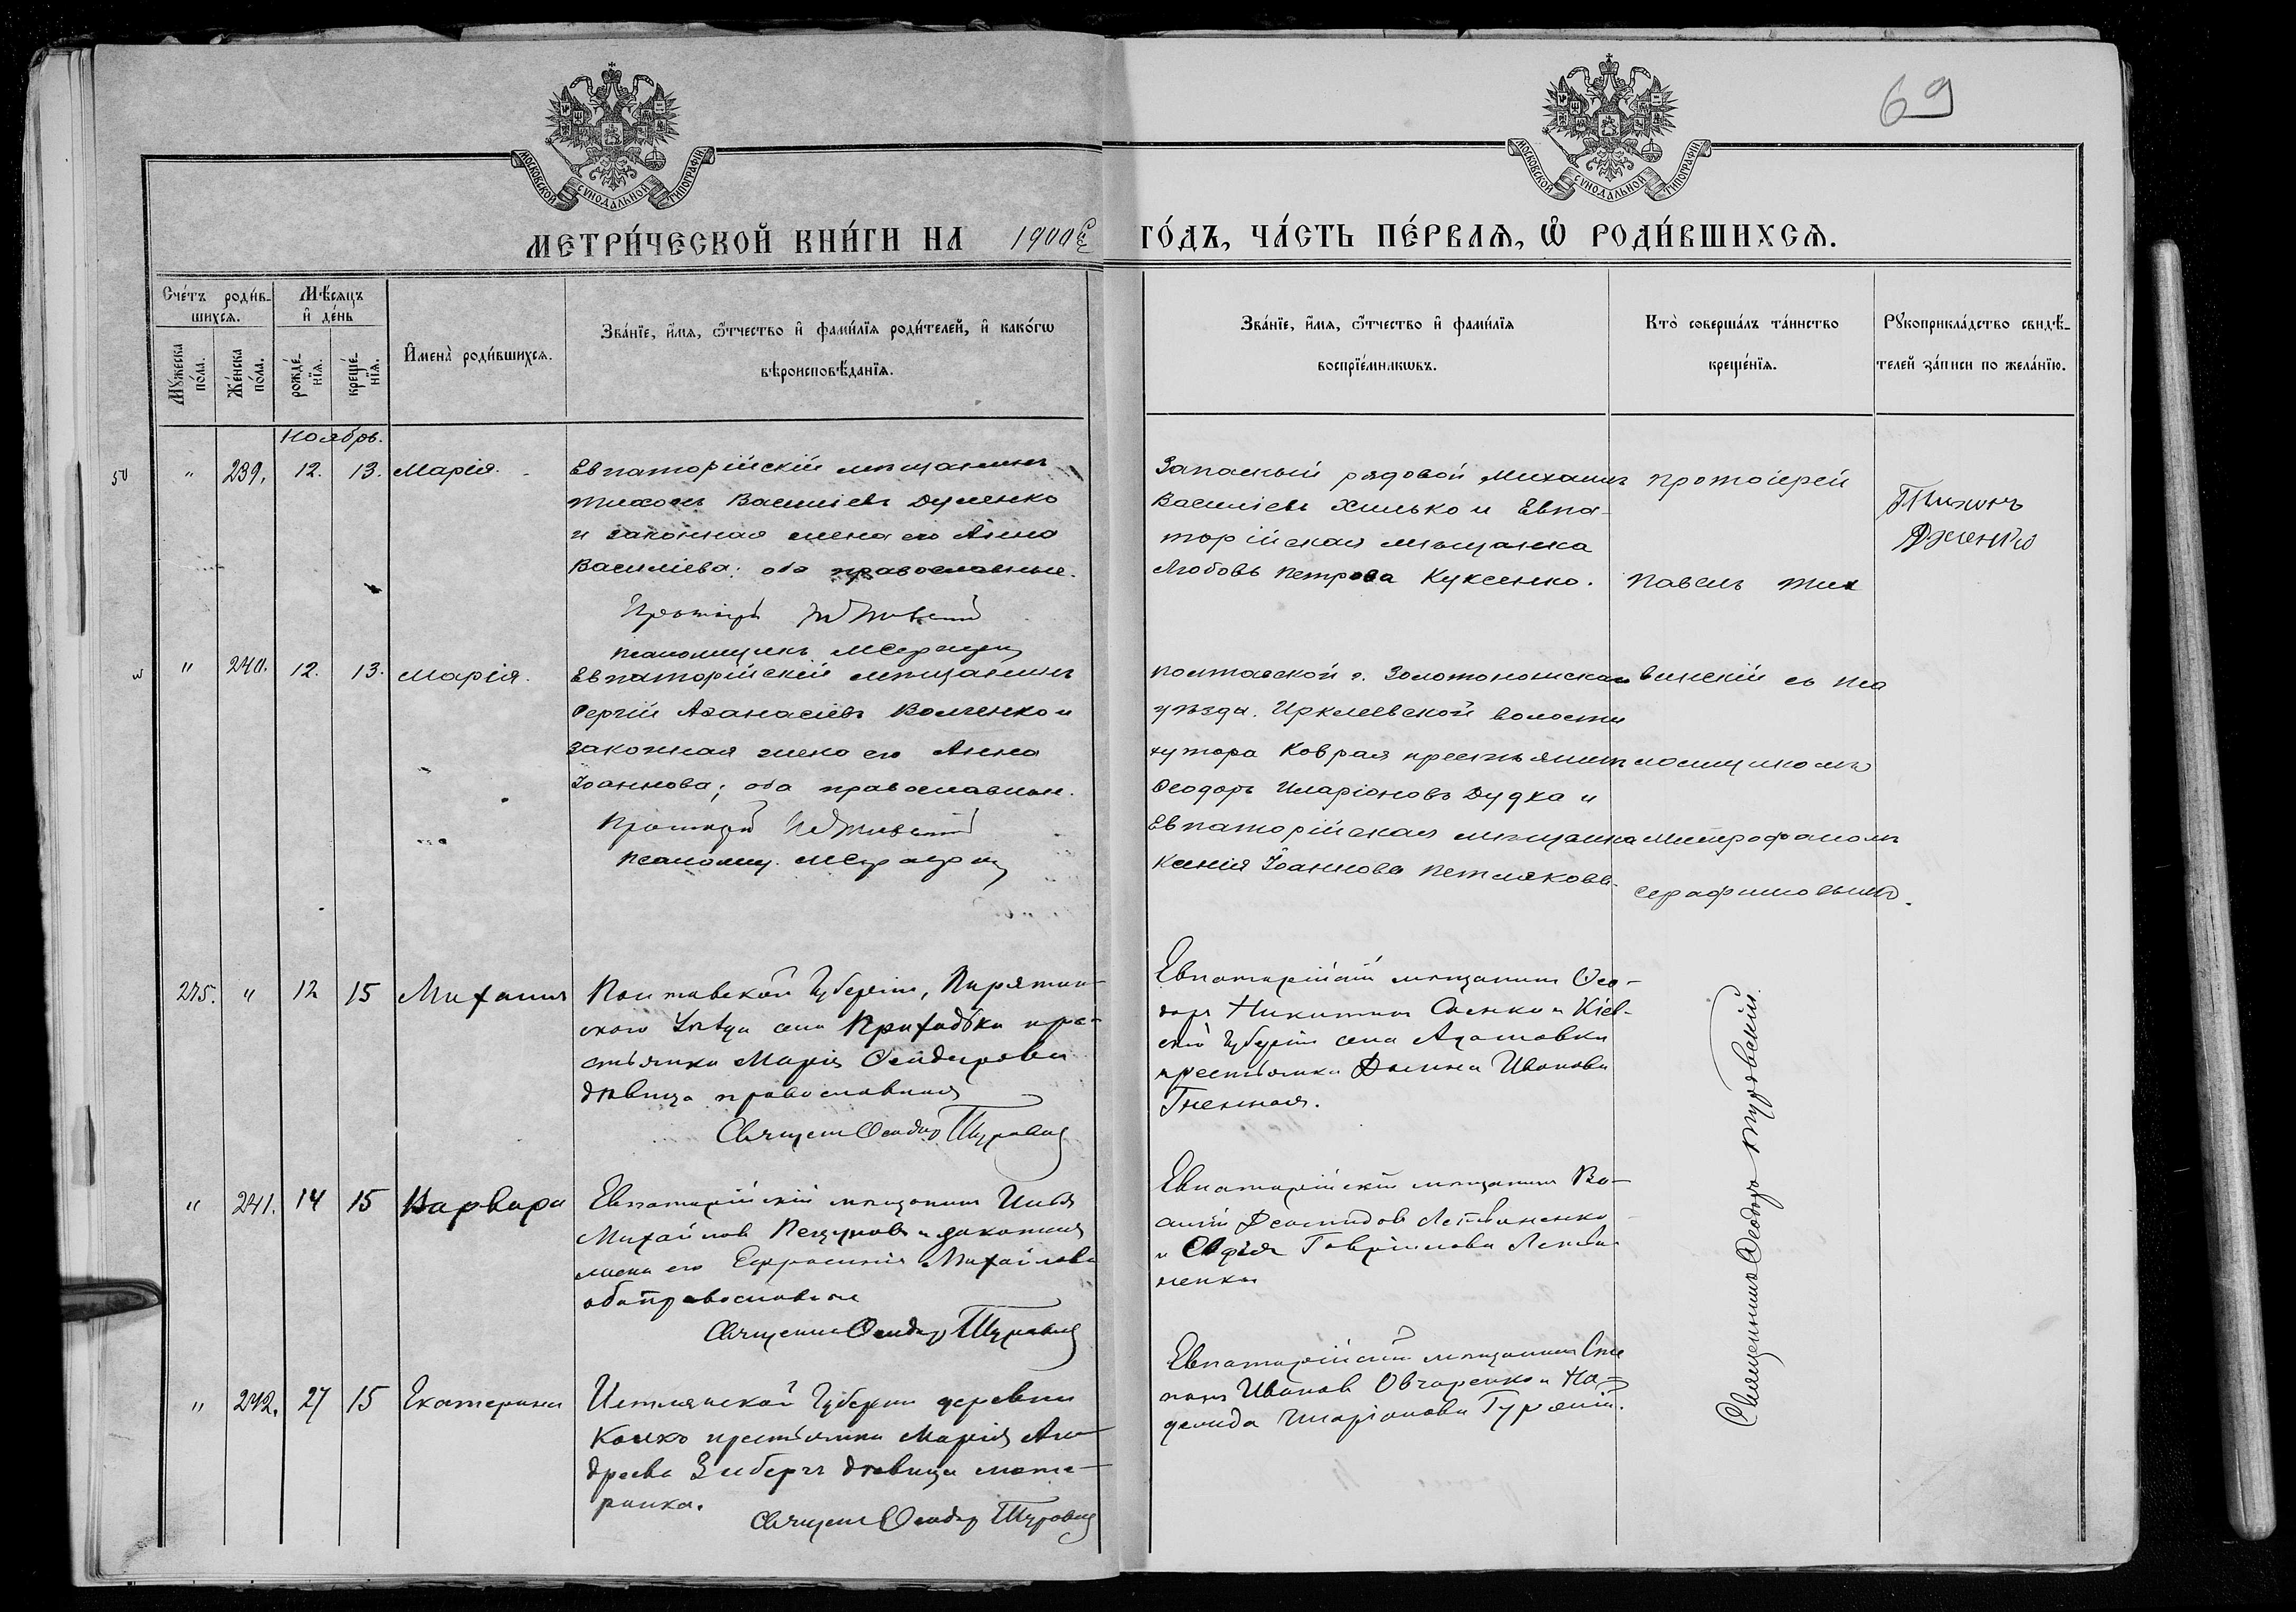 69
МОСКОВСКОЙ СѴНОДАЛЬНОЙ ТИПОГРАФІИ
МОСКОВСКОЙ СѴНОДАЛЬНОЙ ТИПОГРАФІИ
МЕТРИ́ЧЕСКОЙ КНИ́ГИ НА 1900й ГО́ДЪ, ЧА́СТЬ ПЕ́РВАѦ, Ѡ҆ РОДИ́ВШИХСѦ.
Сче́тъ роди́в-
шихсѧ.
Мꙋ́жеска по́ла.
Же́нска по́ла.
Мѣ́сѧцъ и҆ де́нь
рожде́-нїѧ.
креще́-нїѧ.
И҆мена̀ роди́вшихсѧ.
Зва́нїе, и҆́мѧ, ѻ҆́тчество и҆ фами́лїѧ роди́телей, и҆ како́гѡ
вѣроисповѣ́данїѧ.
Зва́нїе, и҆́мѧ, ѻ҆́тчество и҆ фами́лїѧ
воспрїе́мникѡвъ.
Кто̀ соверша́лъ та́инство
креще́нїѧ.
Рꙋкоприкла́дство свидѣ́-
телей за́писи по жела́нїю.
Ноябрь.
50 " 239. 12. 13. Марія.
Евпаторійскій мѣщанинъ
Тихонъ Васильевъ Думенко
и законная жена его Анна
Василіева; оба православные.
Протоіерей
псаломщикъ
Запасный рядовой Михаилъ
Васильевъ Хилько и Евпа-
торійская мѣщанка
Любовь Петрова Куксенко.
Протоіерей
Павелъ Тих
Тихонъ
" 240. 12. 13. Марія.
Евпаторійскій мѣщанинъ
Сергій Аѳанасіевъ Волченко и
законная жена его Анна
Іоаннова; оба православные.
Протоіерей
Псаломщ.
Полтавской г. Золотоношскаго
уѣзда. Ирклеевской волости
хутора Коврая крестьянинъ
Ѳеодоръ Иларіоновъ Дудка и
Евпаторійская мѣщанка
Ксенія Іоаннова Петлякова.
винскій съ пса
ломщикомъ
Митрофаномъ
Серафимовымъ.
215. " 12 15 Михаилъ
Полтавской Губерніи, Пирятин-
скаго Уѣзда села Приходьки кре-
стьянка Марія Ѳеодорова
дѣвица православная
Священ Ѳеодор Туровскій
Евпаторійскій мѣщанинъ Ѳео-
доръ Никитинъ и Кіев-
ской Губерніи села Агатовки
крестьянка Иванова
" 241. 14 15 Варвара
Евпаторійскій мѣщанинъ Илья
Михайловъ и законная
жена его Евфросинія Михайлова
оба православные
Священник Ѳеодор Туровскій
Евпаторійскій мѣщанинъ Ва-
силій Леонидовъ Литвиненко
и Софія Гавріилова Литви-
ненко
" 242. 27 15 Екатерина
Губерніи деревни
крестьянка Марія Ан-
дреева Зиберъ дѣвица люте-
ранка.
Священ Ѳеодор Туровскій
Евпаторійскій мѣщанинъ Сте
панъ Ивановъ Овчаренко и На-
дежда Иларіонова
Священникъ Ѳеодоръ Туровскій.